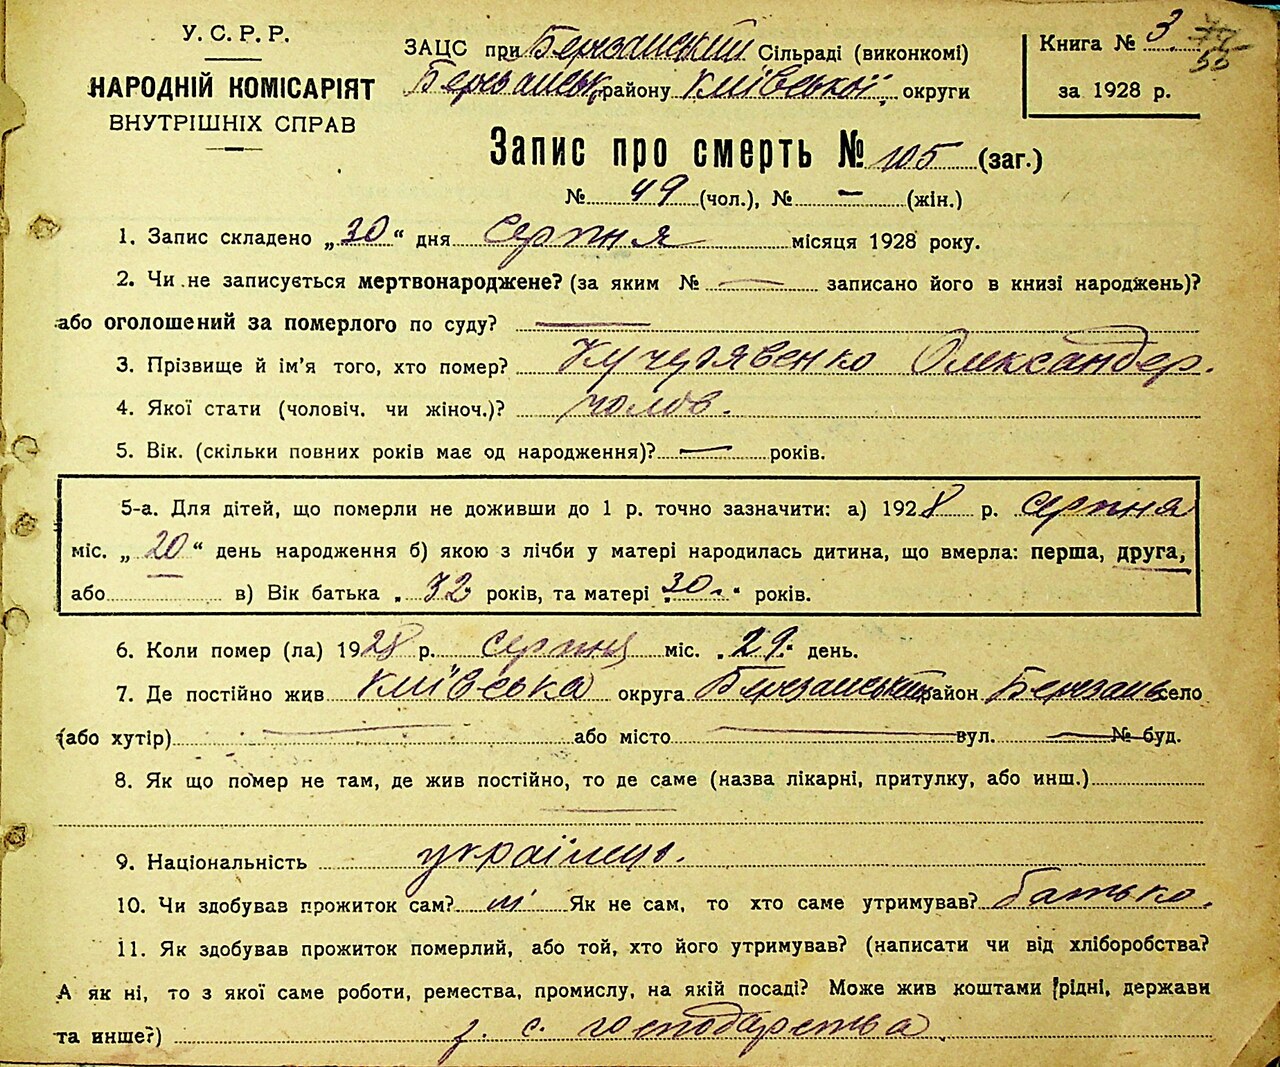 У. С. Р. Р.
НАРОДНІЙ КОМІСАРІЯТ
ВНУТРІШНІХ СПРАВ
ЗАЦС при Березанський Сільраді (виконкомі)
Березанськ. району Київської округи
Книга № 3
за 1928 р.
55
Запис про смерть № 105 (заг.)
№ 49 (чол.), № — (жін.)
1. Запис складено „30“ дня серпня місяця 1928 року.
2. Чи не записується мертвонароджене? (за яким № — записано його в книзі народжень)?
або оголошений за померлого по суду? —
3. Прізвище й ім'я того, хто помер? Кучерявенко Олександер.
4. Якої стати (чоловіч. чи жіноч.)? чолов.
5. Вік. (скільки повних років має од народження)? — років.
5-а. Для дітей, що померли не доживши до 1 р. точно зазначити: а) 1928 р. серпня
міс. „20“ день народження б) якою з лічби у матері народилась дитина, що вмерла: перша, друга,
або в) Вік батька „32 років, та матері „30.“ років.
6. Коли помер (ла) 1928 р. серпня міс. „29“ день.
7. Де постійно жив Київська округа Березанський район Березань село
(або хутір) — або місто — вул. — № буд.
8. Як що помер не там, де жив постійно, то де саме (назва лікарні, притулку, або инш.)
—
9. Національність українець.
10. Чи здобував прожиток сам? ні Як не сам, то хто саме утримував? батько.
11. Як здобував прожиток померлий, або той, хто його утримував? (написати чи від хліборобства?
А як ні, то з якої саме роботи, ремества, промислу, на якій посаді? Може жив коштами рідні, держави
та инше?) з. с. господарства